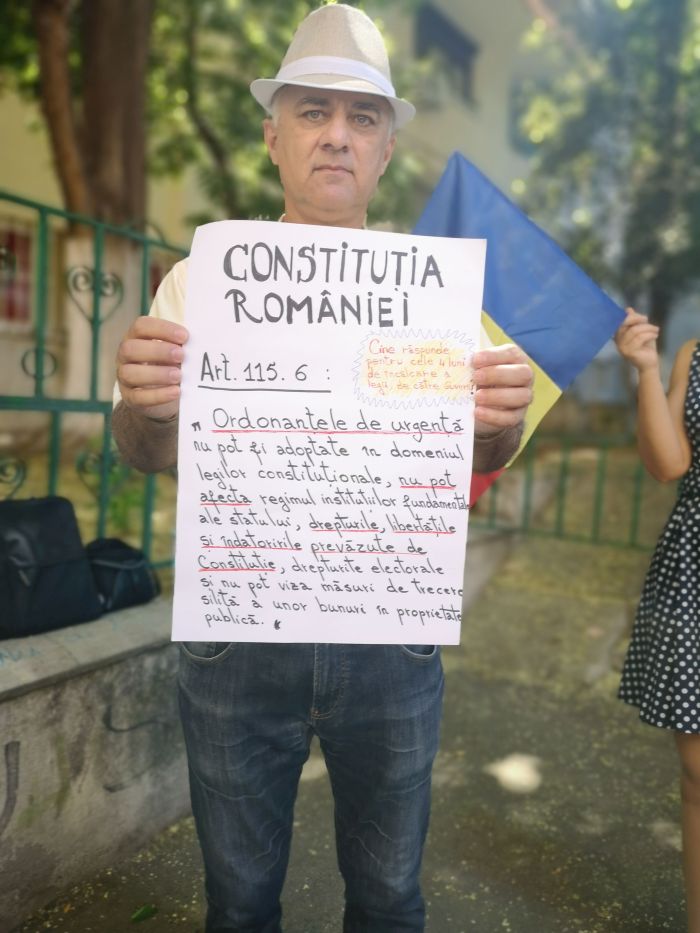 CONSTITUȚIA
ROMÂNIEI
Cine răspunde
pentru cele 4 luni
de încălcare a
legii de către Guvern
Art. 115. 6 :
„ Ordonanțele de urgență
nu pot fi adoptate în domeniul
legilor constituționale, nu pot
afecta regimul instituțiilor fundamentale
ale statului, drepturile, libertățile
și îndatoririle prevăzute de
Constituție, drepturile electorale
și nu pot viza măsuri de trecere
silită a unor bunuri în proprietate
publică. "